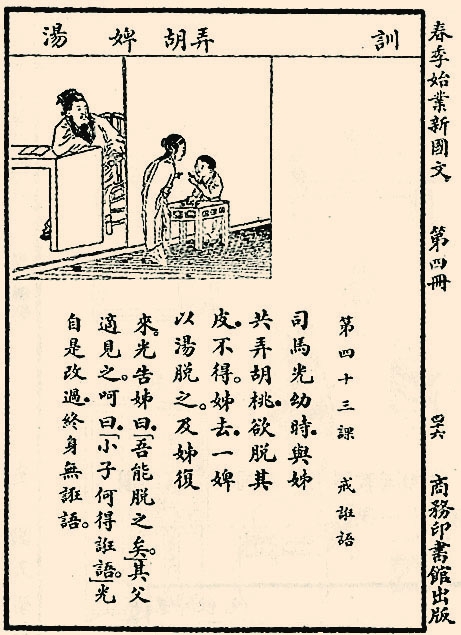 春季始業新國文
第四冊
四六
商務印書館出版
訓 弄胡 婢 湯
第四十三課 戒誑語
司馬光幼時．與姊
共弄胡桃．欲脫其
皮．不得。姊去．一婢
以湯脫之。及姊復
來．光告姊曰．「吾能脫之矣。」其父
適見之．呵曰．「小子何得誑語。」光
自是改過．終身無誑語。